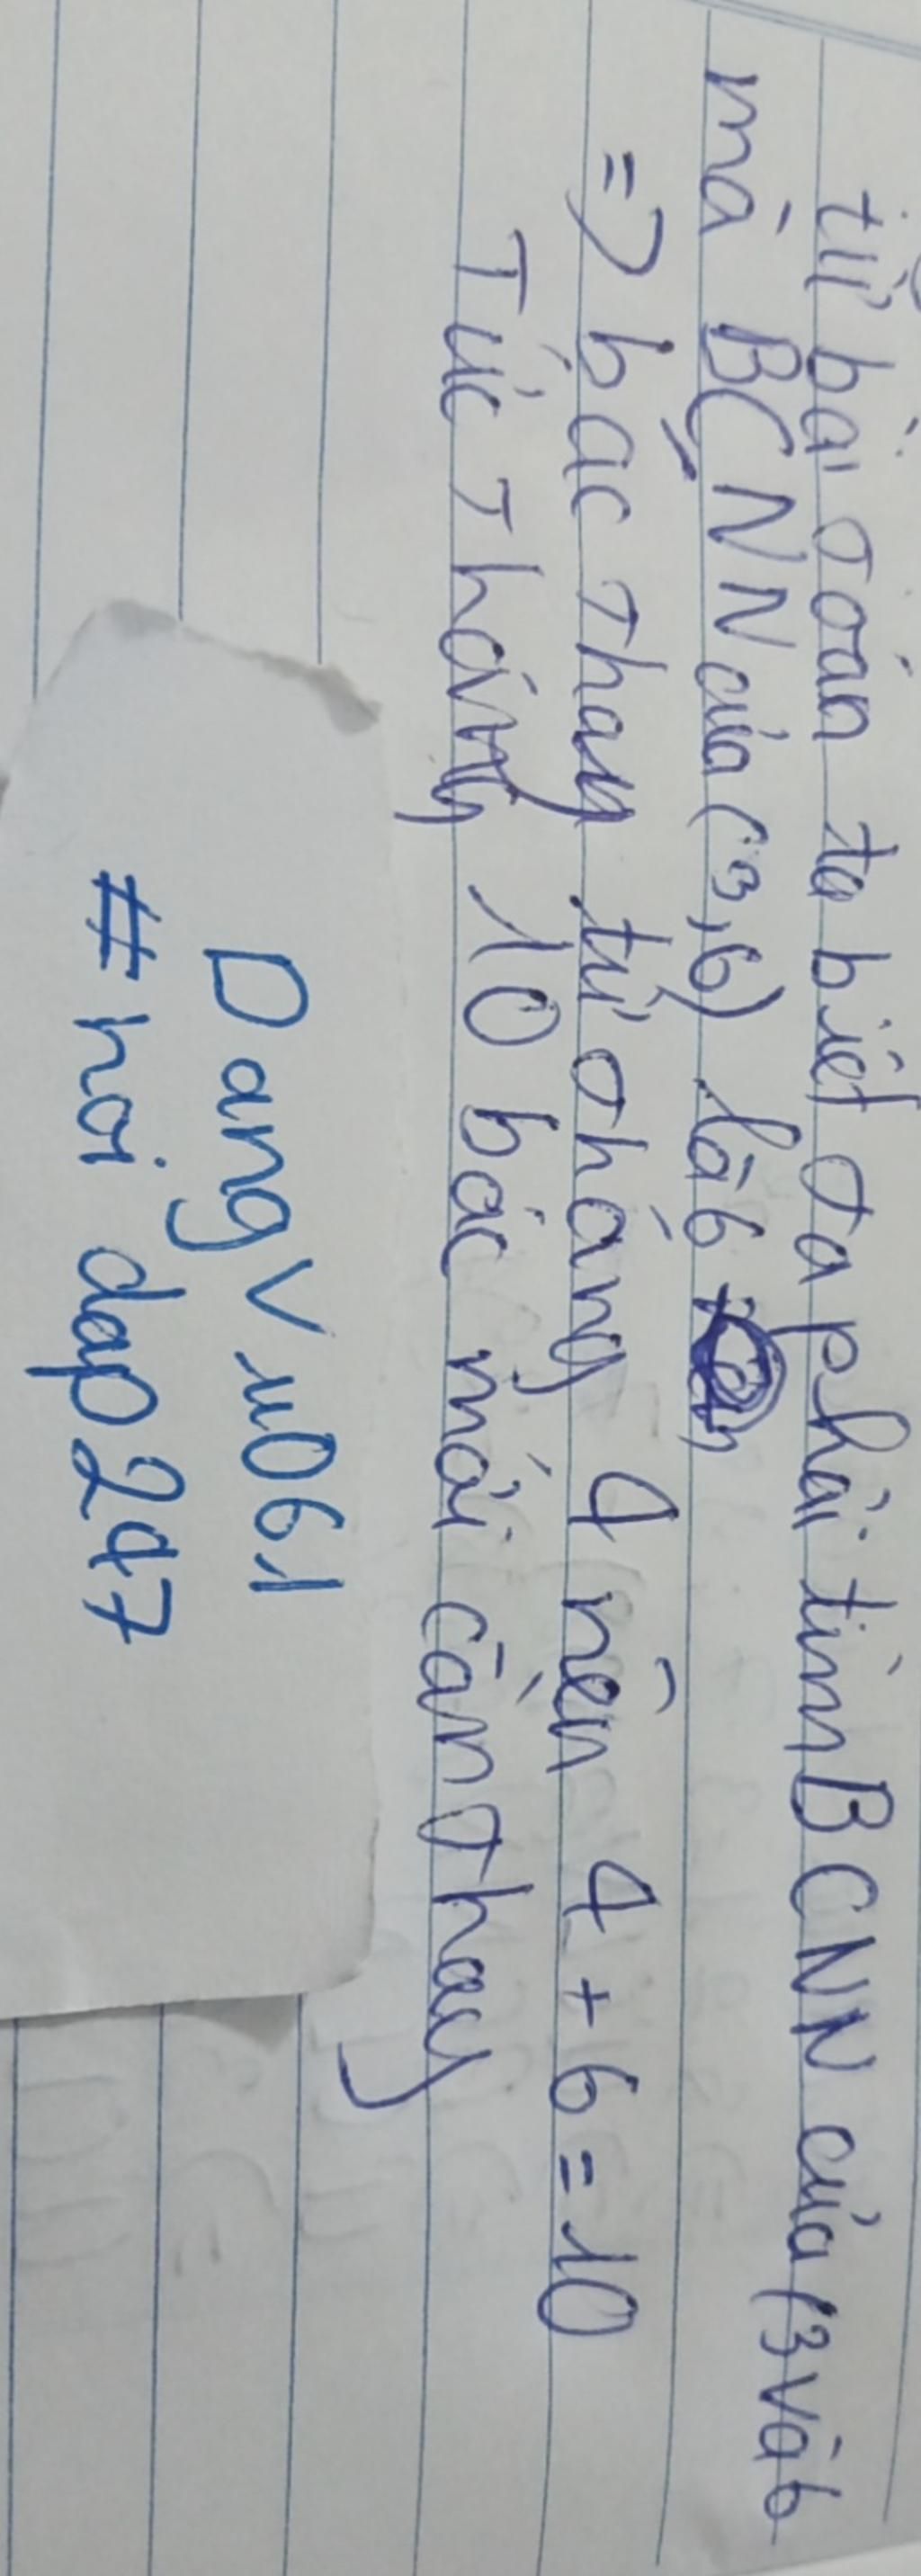 từ bài toán ta biết ta phải tìm BCNN của (3 và 6
mà BCNN của (3,6) là 6
=> bác thay từ tháng 4 nên 4 + 6 = 10
Tức tháng 10 bác mới cần thay
DangVu061
#hoi dap247